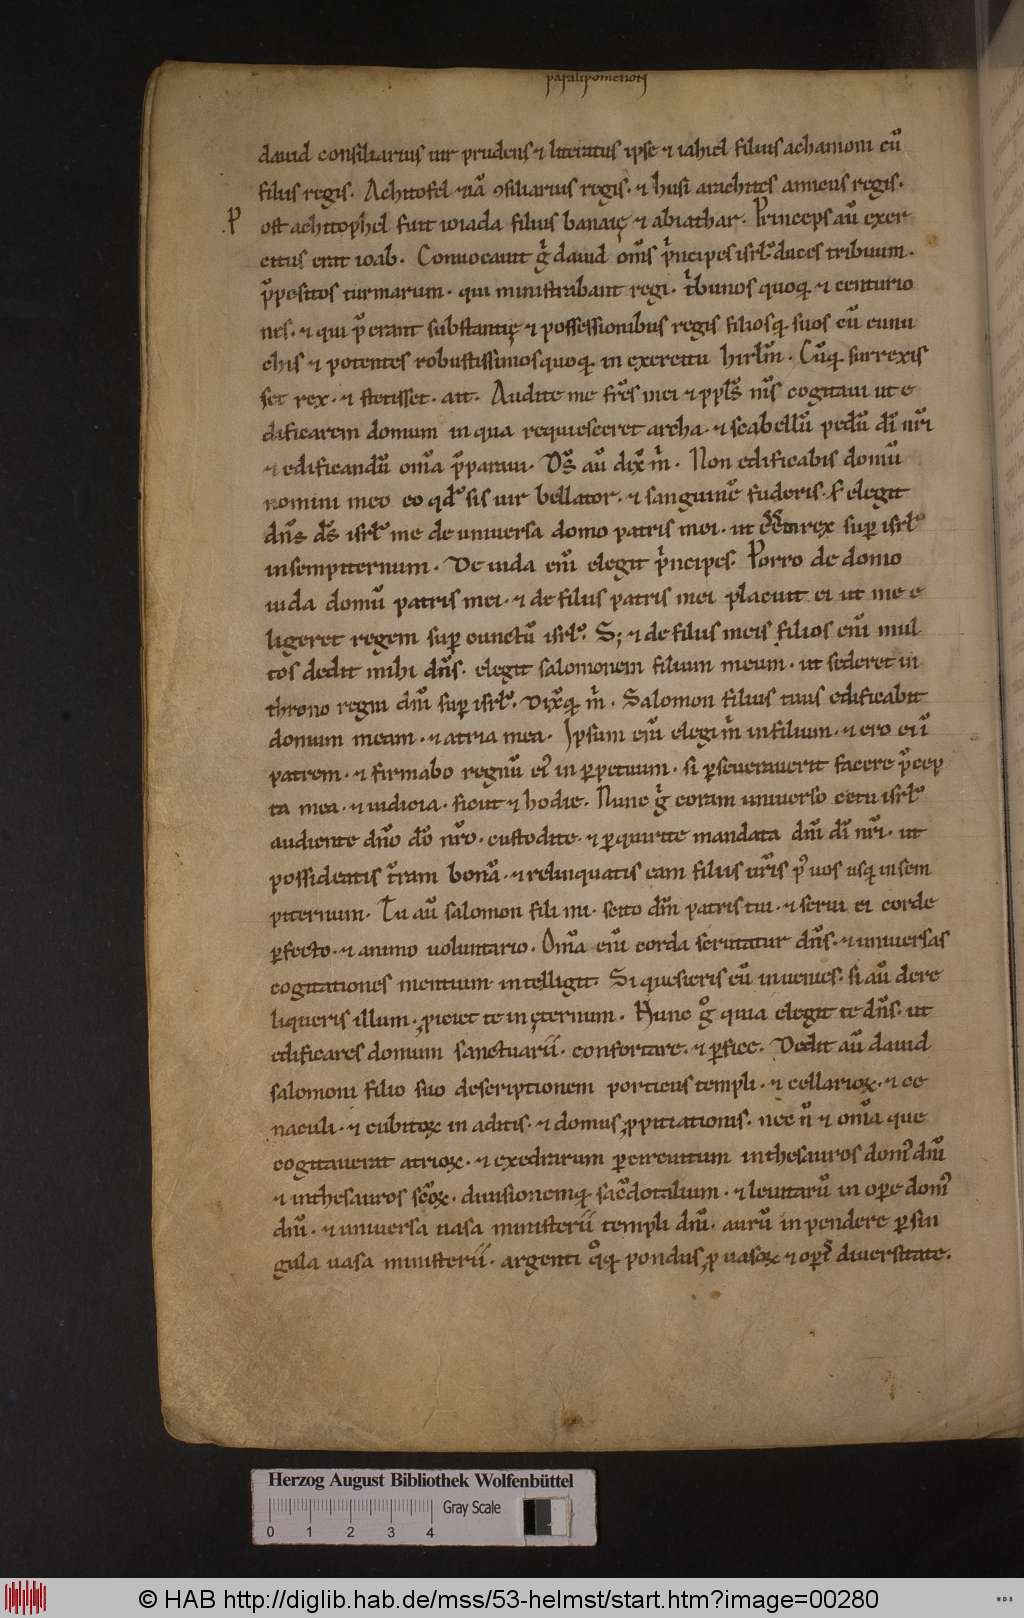 paralipomenon
dauid consiliarius uir prudens ⁊ literatus ipse ⁊ iahiel filius achamoni cū
filiis regis. Achitofel etiā ꝯsiliarius regis. ⁊ husi arachites amicus regis.
P ost achitophel fuit ioiada filius banaię ⁊ abiathar. Princeps aū exer
citus erat ioab. Conuocauit gͥ dauid om̄s pͥncipes isrl̓. duces tribuum.
p̄positos turmarum. qui ministrabant regi. tͥbunos quoq; ⁊ centurio
nes. ⁊ qui p̄erant substantię ⁊ possessionibus regis filiosq; suos cū eunu
chis ⁊ potentes robustissimos quoq; in exercitu hirl̄m. Cūq; surrexis
set rex. ⁊ stetisset. ait. Audite me fr̄s mei ⁊ ppl̄s m̄s cogitaui ut e
dificarem domum in qua requiesceret archa. ⁊ scabellū pedū di̅ nr̄i
⁊ edificandū om̄a p̄paraui. Ds̄ aū dix̄ mͥ. Non edificabis domū
nomini meo eo qd̓ sis uir bellator. ⁊ sanguinē fuderis. Sꝫ elegit
dn̄s ds̄ isrl̓ me de uniuersa domo patris mei. ut rex suꝑ isrl̓
insempiternum. De iuda eni̅ elegit pͥncipes. Porro de domo
iuda domū patris mei. ⁊ de filiis patris mei placuit ei ut me e
ligeret regem suꝑ cunctū isrl̓. S; ⁊ de filiis meis filios eni̅ mul
tos dedit mihi dn̄s. elegit salomonem filium meum. ut sederet in
throno regni dni̅ suꝑ isrl̓. Dix̄q; mͥ. Salomon filius tuus edificabit
domum meam. ⁊ atria mea. Ipsum eni̅ elegi mͥ infilium. ⁊ ero ei ī
patrem. ⁊ firmabo regnū ei᾽ in ꝑpetuum. si ꝑseuerauerit facere p̄cep
ta mea. ⁊ iudicia. sicut ⁊ hodie. Nunc gͥ coram uniuerso cetu isrl̓
audiente dn̄o do̅ nr̄o. custodite. ⁊ ꝑquirite mandata dni̅ di̅ nr̄i. ut
possideatis tr̄am bonā. ⁊ relinquatis eam filiis ur̄is p᾽ uos usq; insem
piternum. Tu aū salomon fili mi. scito dm̄ patris tui. ⁊ serui ei corde
ꝑfecto. ⁊ animo uoluntario. Om̄a eni̅ corda scrutatur dn̄s. ⁊ uniuersas
cogitationes mentium intelligit. Si quesieris eū inuenies. si aū dere
liqueris illum. ꝓiciet te in ęternum. Nunc gͦ quia elegit te dn̄s. ut
edificares domum sanctuarii. confortare. ⁊ ꝑfice. Dedit aū dauid
salomoni filio suo descriptionem porticus templi. ⁊ cellarioꝝ. ⁊ ce
naculi. ⁊ cubitoꝝ in aditis. ⁊ domus ꝓpitiationis. nec n̄ ⁊ om̄a que
cogitauerat atrioꝝ. ⁊ exedrarum ꝑ circuitum inthesauros dom᾽ dni̅
⁊ inthesauros sc̄oꝝ. diuisionemq; sac̄dotalium. ⁊ leuitarū in oꝑe dom᾽
dni̅. ⁊ uniuersa uasa ministerii templi dni̅. aurū in pendere ꝑ sin
gula uasa ministerii. argenti qͦq; pondus ꝓ uasoꝝ ⁊ oꝑ diuersitate.
Herzog August Bibliothek Wolfenbüttel
Gray Scale
0 1 2 3 4
© HAB http://diglib.hab.de/mss/53-helmst/start.htm?image=00280